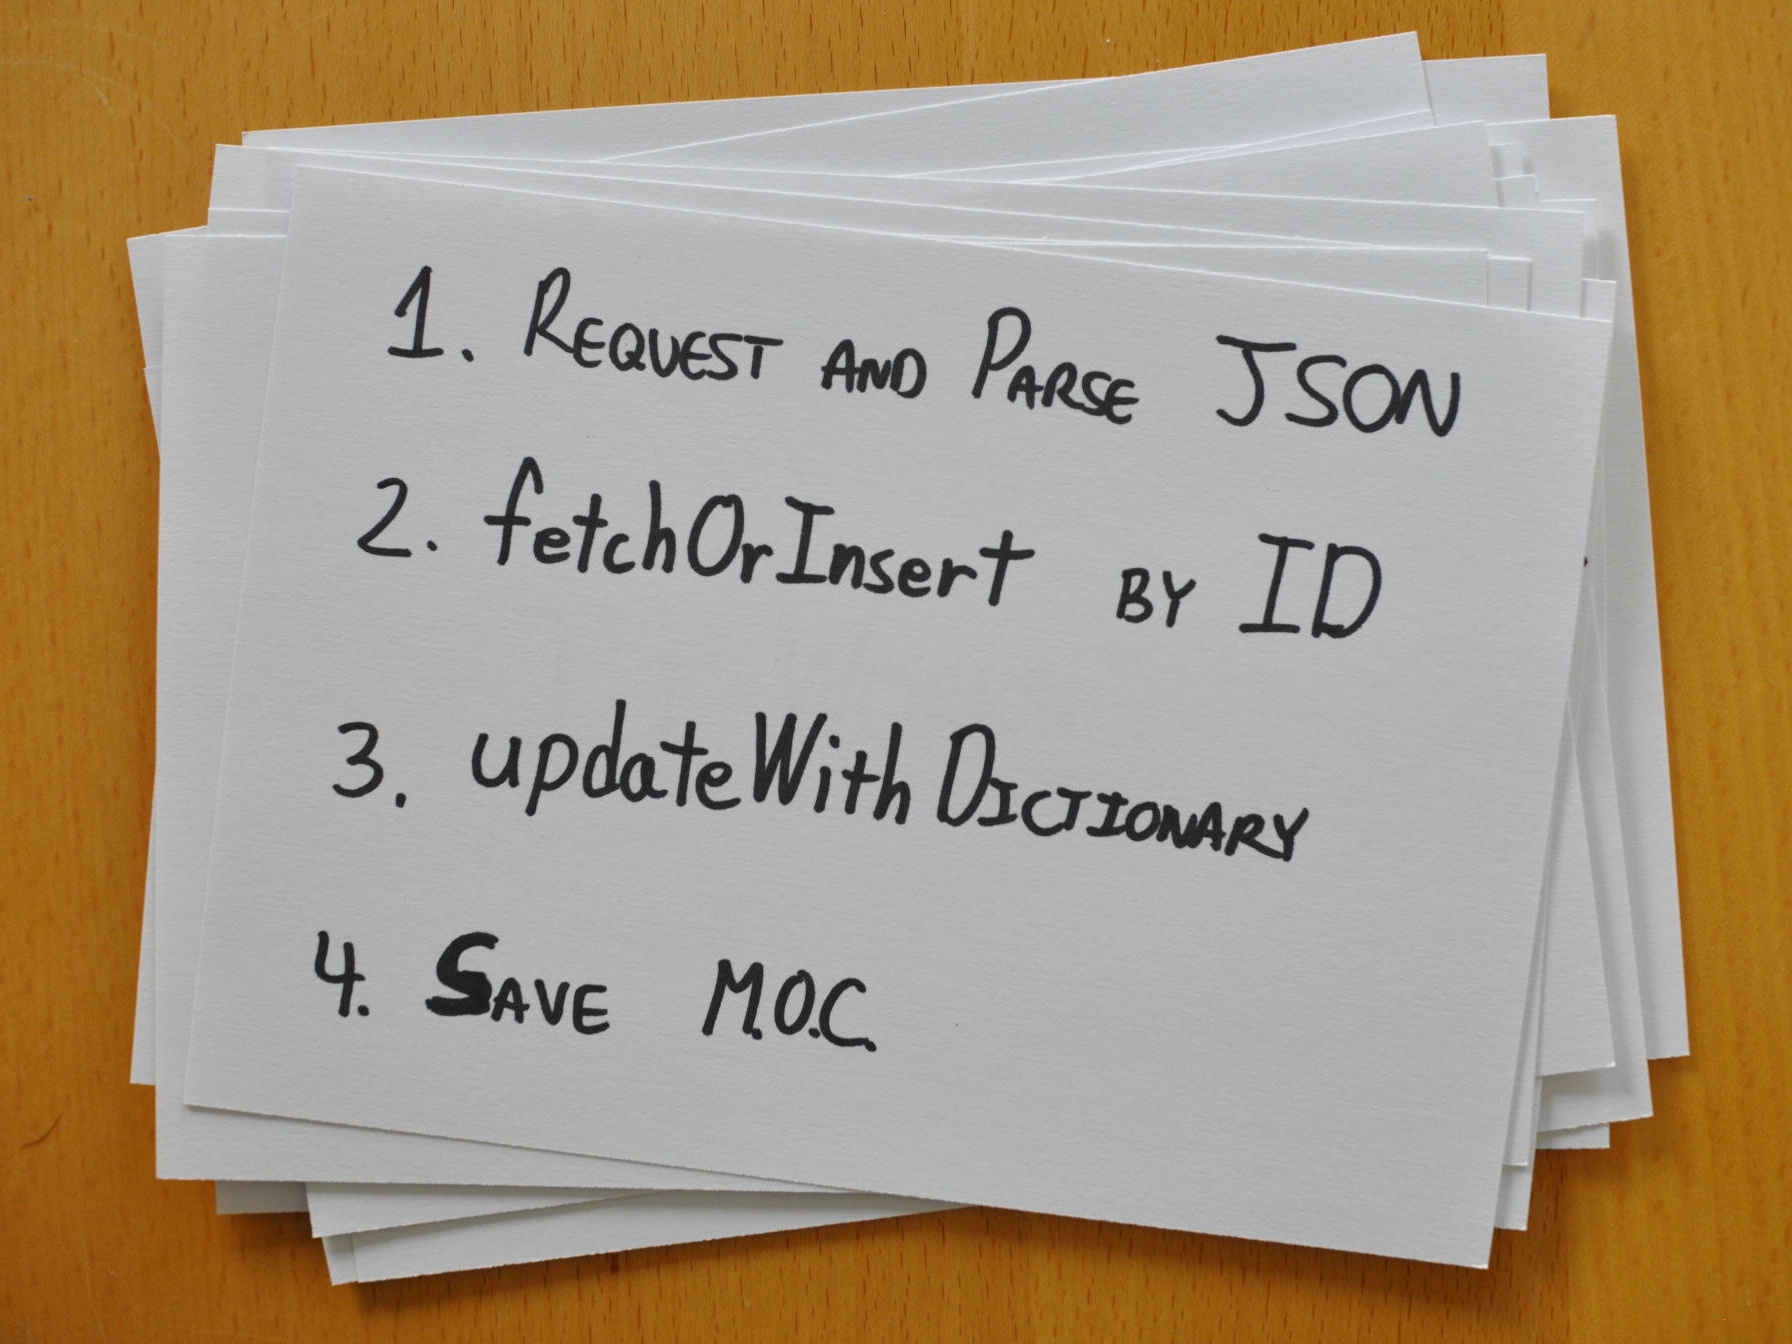 1. REQUEST AND PARSE JSON
2. fetchOrInsert BY ID
3. updateWithDICTIONARY
4. SAVE M.O.C.